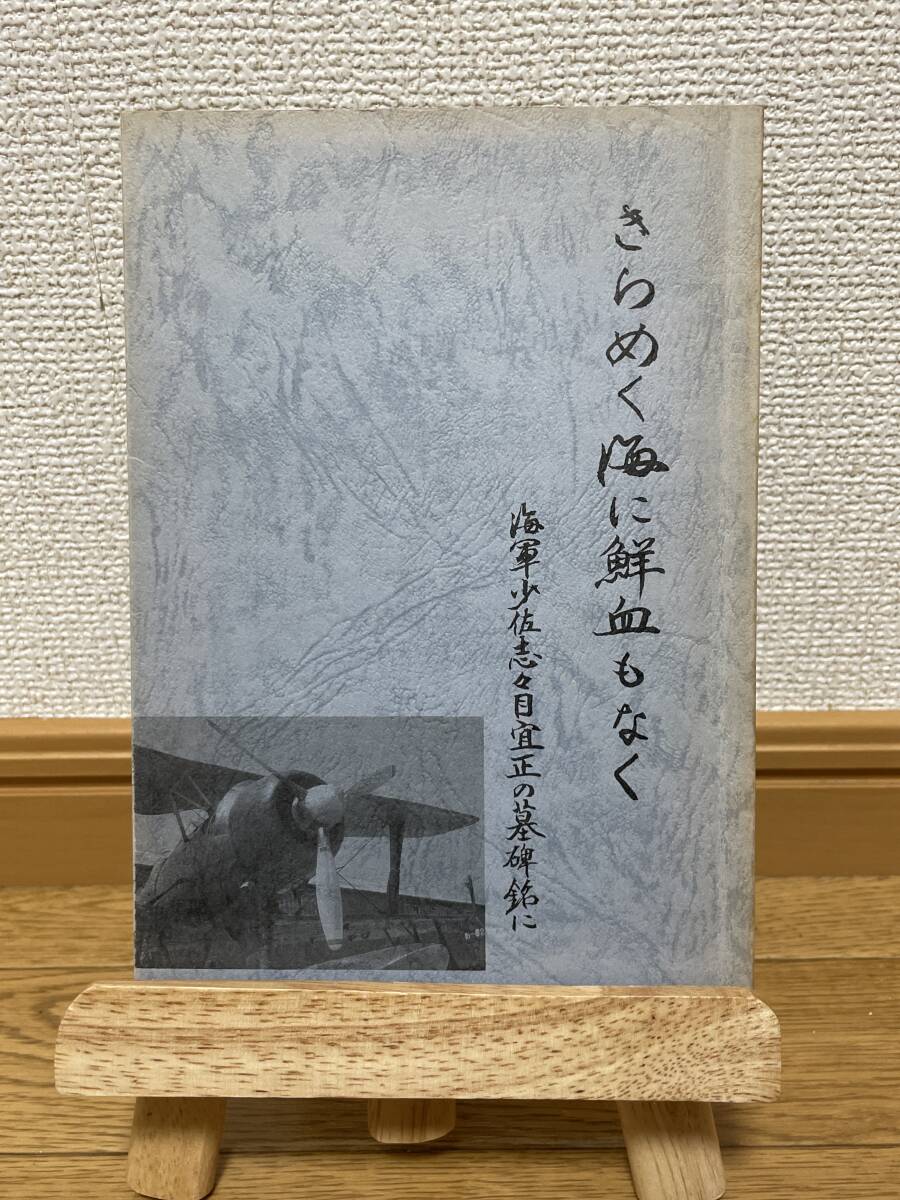 きらめく海に鮮血もなく
海軍少佐志々目宜正の墓碑銘に